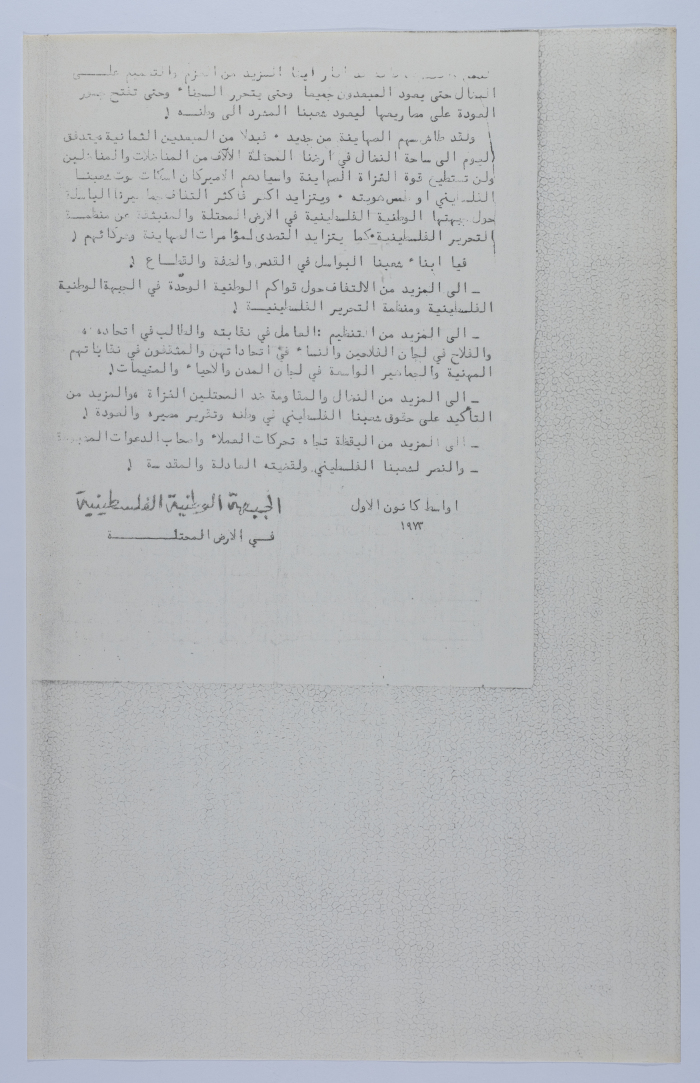 المزيد من العزم والتصميم علـــى
النضال حتى يعود المبعدون جميعا وحتى يتحرر السجناء وحتى تفتح جسور
العودة على مصاريعها ليعود شعبنا المشرد الى وطنــه !
ولقد طاش سهم الصهاينة من جديد ٠ فبدلا من المبعدين الثمانية سيتدفق
اليوم الى ساحة النضال في ارضنا المحتلة الآلاف من المناضلات والمناضلين
ولن تستطيع قوة الغزاة الصهاينة واسيادهم الاميركان اسكات صوت شعبنـا
الفلسطيني او طمس هويته ٠ ويتزايد اكثر فاكثر التفاف جماهيرنا الباسلة
حول جبهتها الوطنية الفلسطينية في الارض المحتلة والمنبثقة عن منظمــة
التحرير الفلسطينية ٠ كما يتزايد التصدى لمؤامرات الصهاينة وحركاتهم !
فيا ابناء شعبنا البواسل في القدس والضفة والقطــاع !
ـ الى المزيد من الالتفاف حول قواكم الوطنية الموحّدة في الجبهة الوطنية
الفلسطينية ومنظمة التحرير الفلسطينيــة !
ـ الى المزيد من التنظيم : العامل في نقابته والطالب في اتحاده
والفلاح في لجان الفلاحين والنساء في اتحاداتهن والمثقفون في نقاباتهم
المهنية والجماهير الواسعة في لجان المدن والاحياء والمخيمات !
ـ الى المزيد من النضال والمقاومة ضد المحتلين الغزاة ٠ والمزيد من
التأكيد على حقوق شعبنا الفلسطيني في وطنه وتقرير مصيره والعودة !
ـ الى المزيد من اليقظة تجاه تحركات العملاء واصحاب الدعوات
ـ والنصر لشعبنا الفلسطيني ولقضيته العادلة والمقدسة !
اواسط كانون الاول
١٩٧٣
الجبهة الوطنية الفلسطينية
فــي الارض المحتلــــــــة